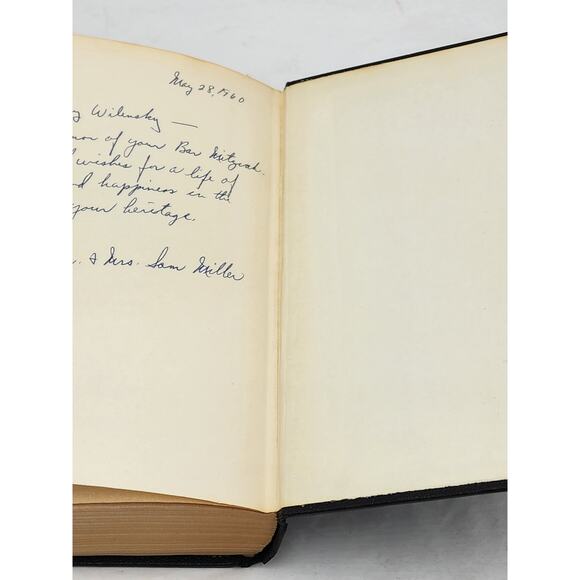 May 28, 1960
y Wilensky —
nor of your Bar Mitzvah.
wishes for a life of
d happiness in the
your heritage.
. & Mrs. Sam Miller